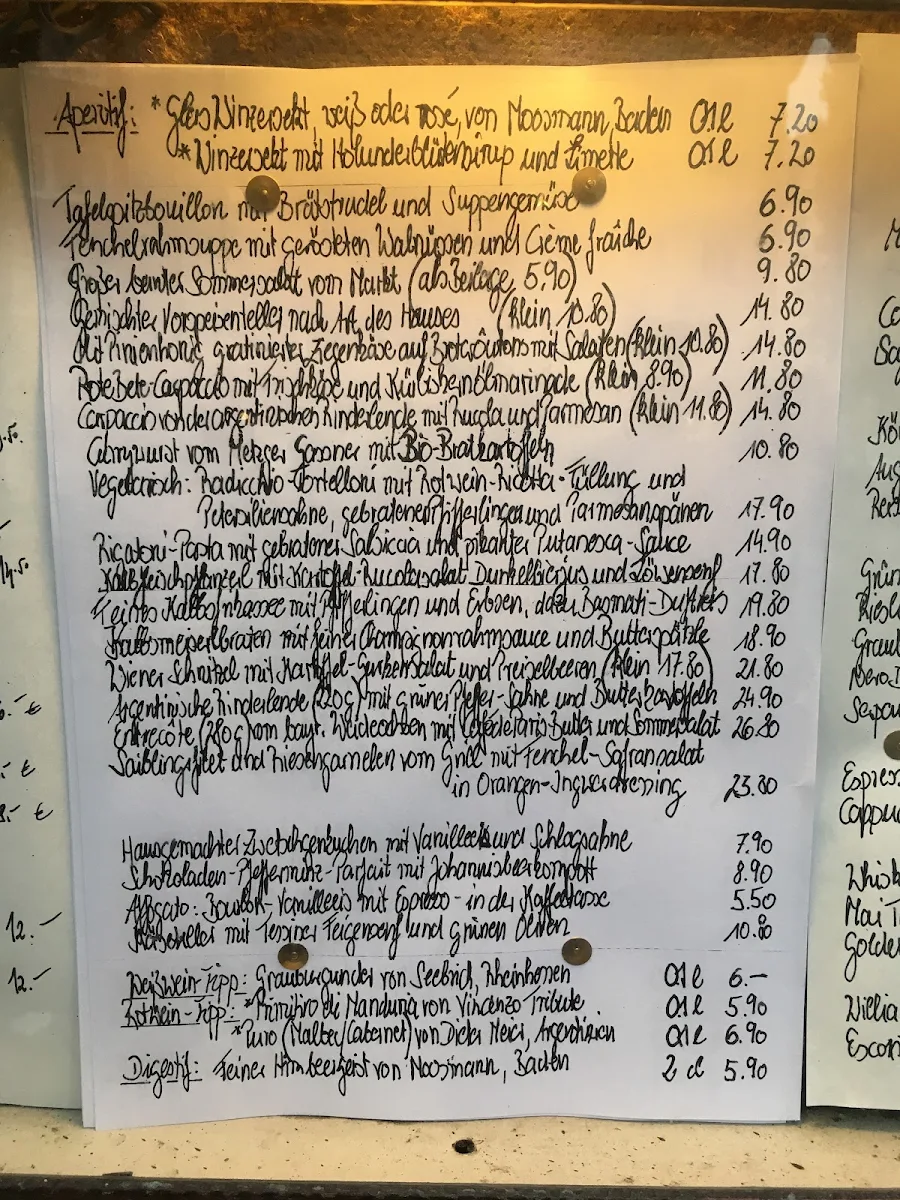 Aperitif: * Glas Winzersekt, weiß oder rosé, von Moosmann, Baden 0,1 l 7.20
* Winzersekt mit Holunderblütensirup und Limette 0,1 l 7.20
Tafelspitzbouillon mit Brätstrudel und Suppengemüse 6.90
Fenchelrahmsuppe mit gerösteten Walnüssen und Crème fraîche 6.90
Großer bunter Sommersalat vom Markt (als Beilage 5,90) 9.80
Gemischter Vorspeisenteller nach Art des Hauses (klein 10.80) 14.80
Mit Pinienhonig gratinierter Ziegenkäse auf Brotcroûtons mit Salaten (klein 10.80) 14.80
Rote Bete-Carpaccio mit Frischkäse und Kürbiskernölmarinade (klein 8.90) 11.80
Carpaccio von der argentinischen Rinderlende mit Rucola und Parmesan (klein 11.80) 14.80
Currywurst vom Metzger Gassner mit Bio-Bratkartoffeln 10.80
Vegetarisch: Radicchio-Tortelloni mit Rotwein-Ricotta-Füllung und
Petersiliensahne, gebratenen Pfifferlingen und Parmesanspänen 17.90
Rigatoni-Pasta mit gebratener Salsiccia und pikanter Putanesca-Sauce 14.90
Kalbfleischpflanzerl mit Kartoffel-Rucolasalat, Dunkelbierjus und Löwensenf 17.80
Feines Kalbsfrikassee mit Pfifferlingen und Erbsen, dazu Basmati-Duftreis 19.80
Kalbsmeiserlbraten mit feiner Champignonrahmsauce und Butterspätzle 18.90
Wiener Schnitzel mit Kartoffel-Gurkensalat und Preiselbeeren (klein 17.80) 21.80
Argentinische Rinderlende (220g) mit grüner Pfeffer-Sahne und Butterkartoffeln 24.90
Entrecôte (280g) vom bayr. Weideochsen mit Café de Paris Butter und Sommersalat 26.80
Saiblingsfilet und Riesengarnelen vom Grill mit Fenchel-Safransalat
in Orangen-Ingwerdressing 23.80
Hausgemachter Zwetschgenkuchen mit Vanilleeis und Schlagsahne 7.90
Schokoladen-Pfefferminz-Parfait mit Johannisbeerkompott 8.90
Affogato: Bourbon-Vanilleeis mit Espresso - in der Kaffeetasse 5.50
Käseteller mit Tessiner Feigensenf und grünen Oliven 10.80
Weißwein-Tipp: Grauburgunder von Seebrich, Rheinhessen 0,1 l 6.–
Rotwein-Tipp: * Primitivo di Manduria von Vincenzo Tribute 0,1 l 5.90
* Puro (Malbec/Cabernet) von Dieter Meier, Argentinien 0,1 l 6.90
Digestif: Feiner Himbeergeist von Moosmann, Baden 2 cl 5.90
12.–
12.–